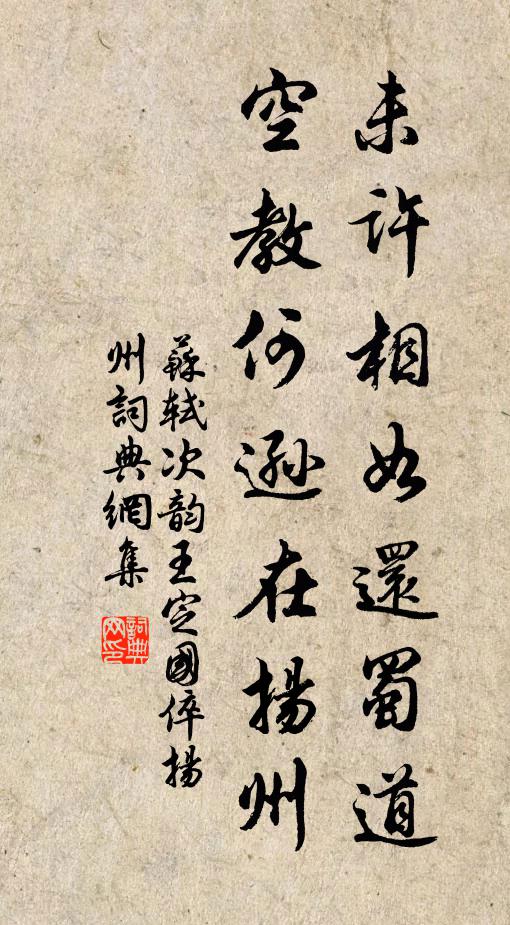 未許相如還蜀道
空教何遜在揚州
蘇軾次韵王定國倅揚
州詞典網集
詞典
网印